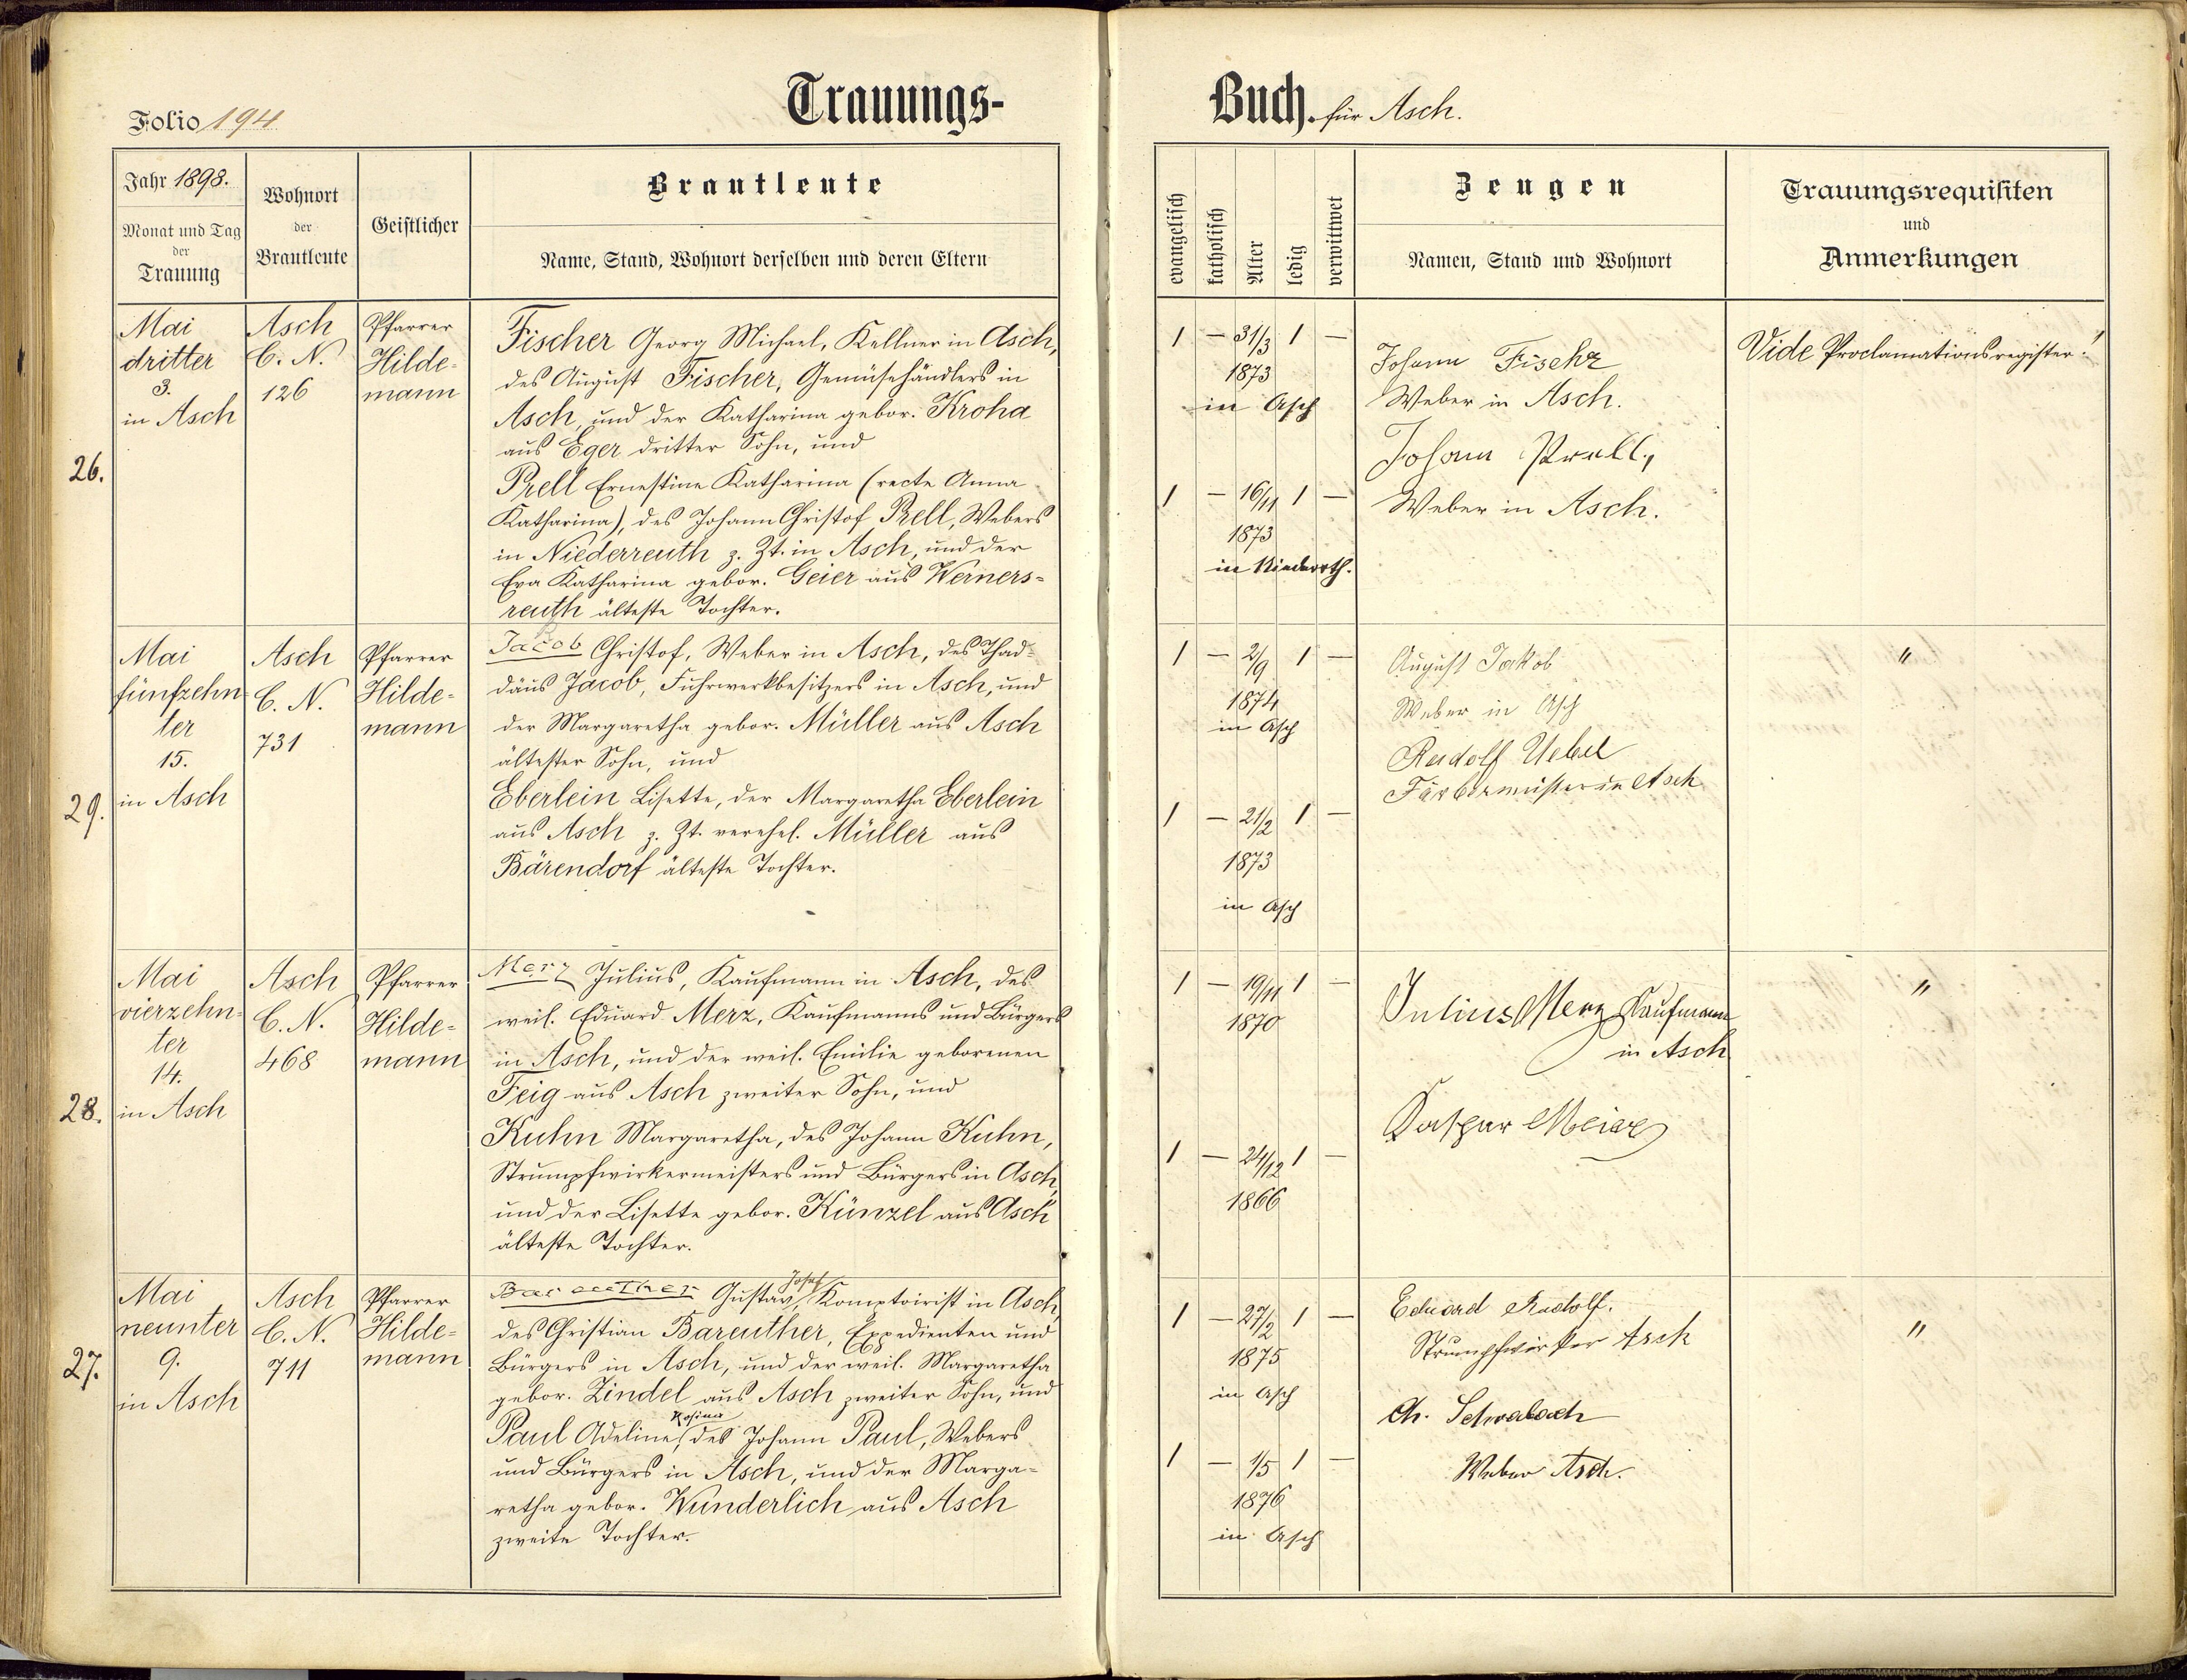 Folio 194
Trauungs-
Jahr 1898.
Monat und Tag
der
Trauung
Wohnort
der
Brautleute
Geistlicher
Brautleute
Name, Stand, Wohnort derselben und deren Eltern
26.
Mai
dritter
3.
in Asch
Asch
C. N.
126
Pfarrer
Hilde-
mann
Fischer Georg Michael, Kellner in Asch,
des August Fischer, Gemüsehändlers in
Asch, und der Katharina gebor. Kroha
aus Eger dritter Sohn, und
Prell Ernestine Katharina (recte Anna
Katharina), des Johann Christof Prell, Webers
in Niederreuth z. Zt. in Asch, und der
Eva Katharina gebor. Geier aus Werners-
reuth älteste Tochter.
29.
Mai
fünfzehn-
ter
15.
in Asch
Asch
C. N.
731
Pfarrer
Hilde-
mann
Jacob Christof, Weber in Asch, des Thad-
däus Jacob, Fuhrwerkbesitzers in Asch, und
der Margaretha gebor. Müller aus Asch
ältester Sohn, und
Eberlein Lisette, der Margaretha Eberlein
aus Asch z. Zt. verehel. Müller aus
Bärendorf älteste Tochter.
28.
Mai
vierzehn-
ter
14.
in Asch
Asch
C. N.
468
Pfarrer
Hilde-
mann
Merz Julius, Kaufmann in Asch, des
weil. Eduard Merz, Kaufmanns und Bürgers
in Asch, und der weil. Emilie geborenen
Feig aus Asch zweiter Sohn, und
Kuhn Margaretha, des Johann Kuhn,
Strumpfwirkermeisters und Bürgers in Asch,
und der Lisette gebor. Künzel aus Asch
älteste Tochter.
27.
Mai
neunter
9.
in Asch
Asch
C. N.
711
Pfarrer
Hilde-
mann
Josef
Bareuther Gustav, Komptoirist in Asch,
des Christian Bareuther, Expedienten und
Bürgers in Asch, und der weil. Margaretha
gebor. Zindel aus Asch zweiter Sohn, und
Rosina
Paul Adeline, des Johann Paul, Webers
und Bürgers in Asch, und der Marga-
retha gebor. Wunderlich aus Asch
zweite Tochter.
Buch. für Asch.
evangelisch
katholisch
Alter
ledig
verwittwet
Zeugen
Namen, Stand und Wohnort
Trauungsrequisiten
und
Anmerkungen
1 — 31/3 1 —
1873
in Asch
1 — 16/11 1 —
1873
in Niederrth.
Johann Fischer
Weber in Asch.
Johann Prell,
Weber in Asch.
Vide Proclamationsregister!
1 — 2/9 1 —
1874
in Asch
1 — 21/2 1 —
1873
in Asch
August Jakob
Weber in Asch
Rudolf Uebel
Färbermeister in Asch
"
1 — 19/11 1 —
1870
1 — 24/12 1 —
1866
Julius Merz Kaufmann
in Asch
Kaspar Meier
"
1 — 27/2 1 —
1875
in Asch
1 — 1/5 1 —
1876
in Asch
Eduard Rudolf.
Strumpfwirker Asch
Ch. Schwabach
Weber Asch.
"